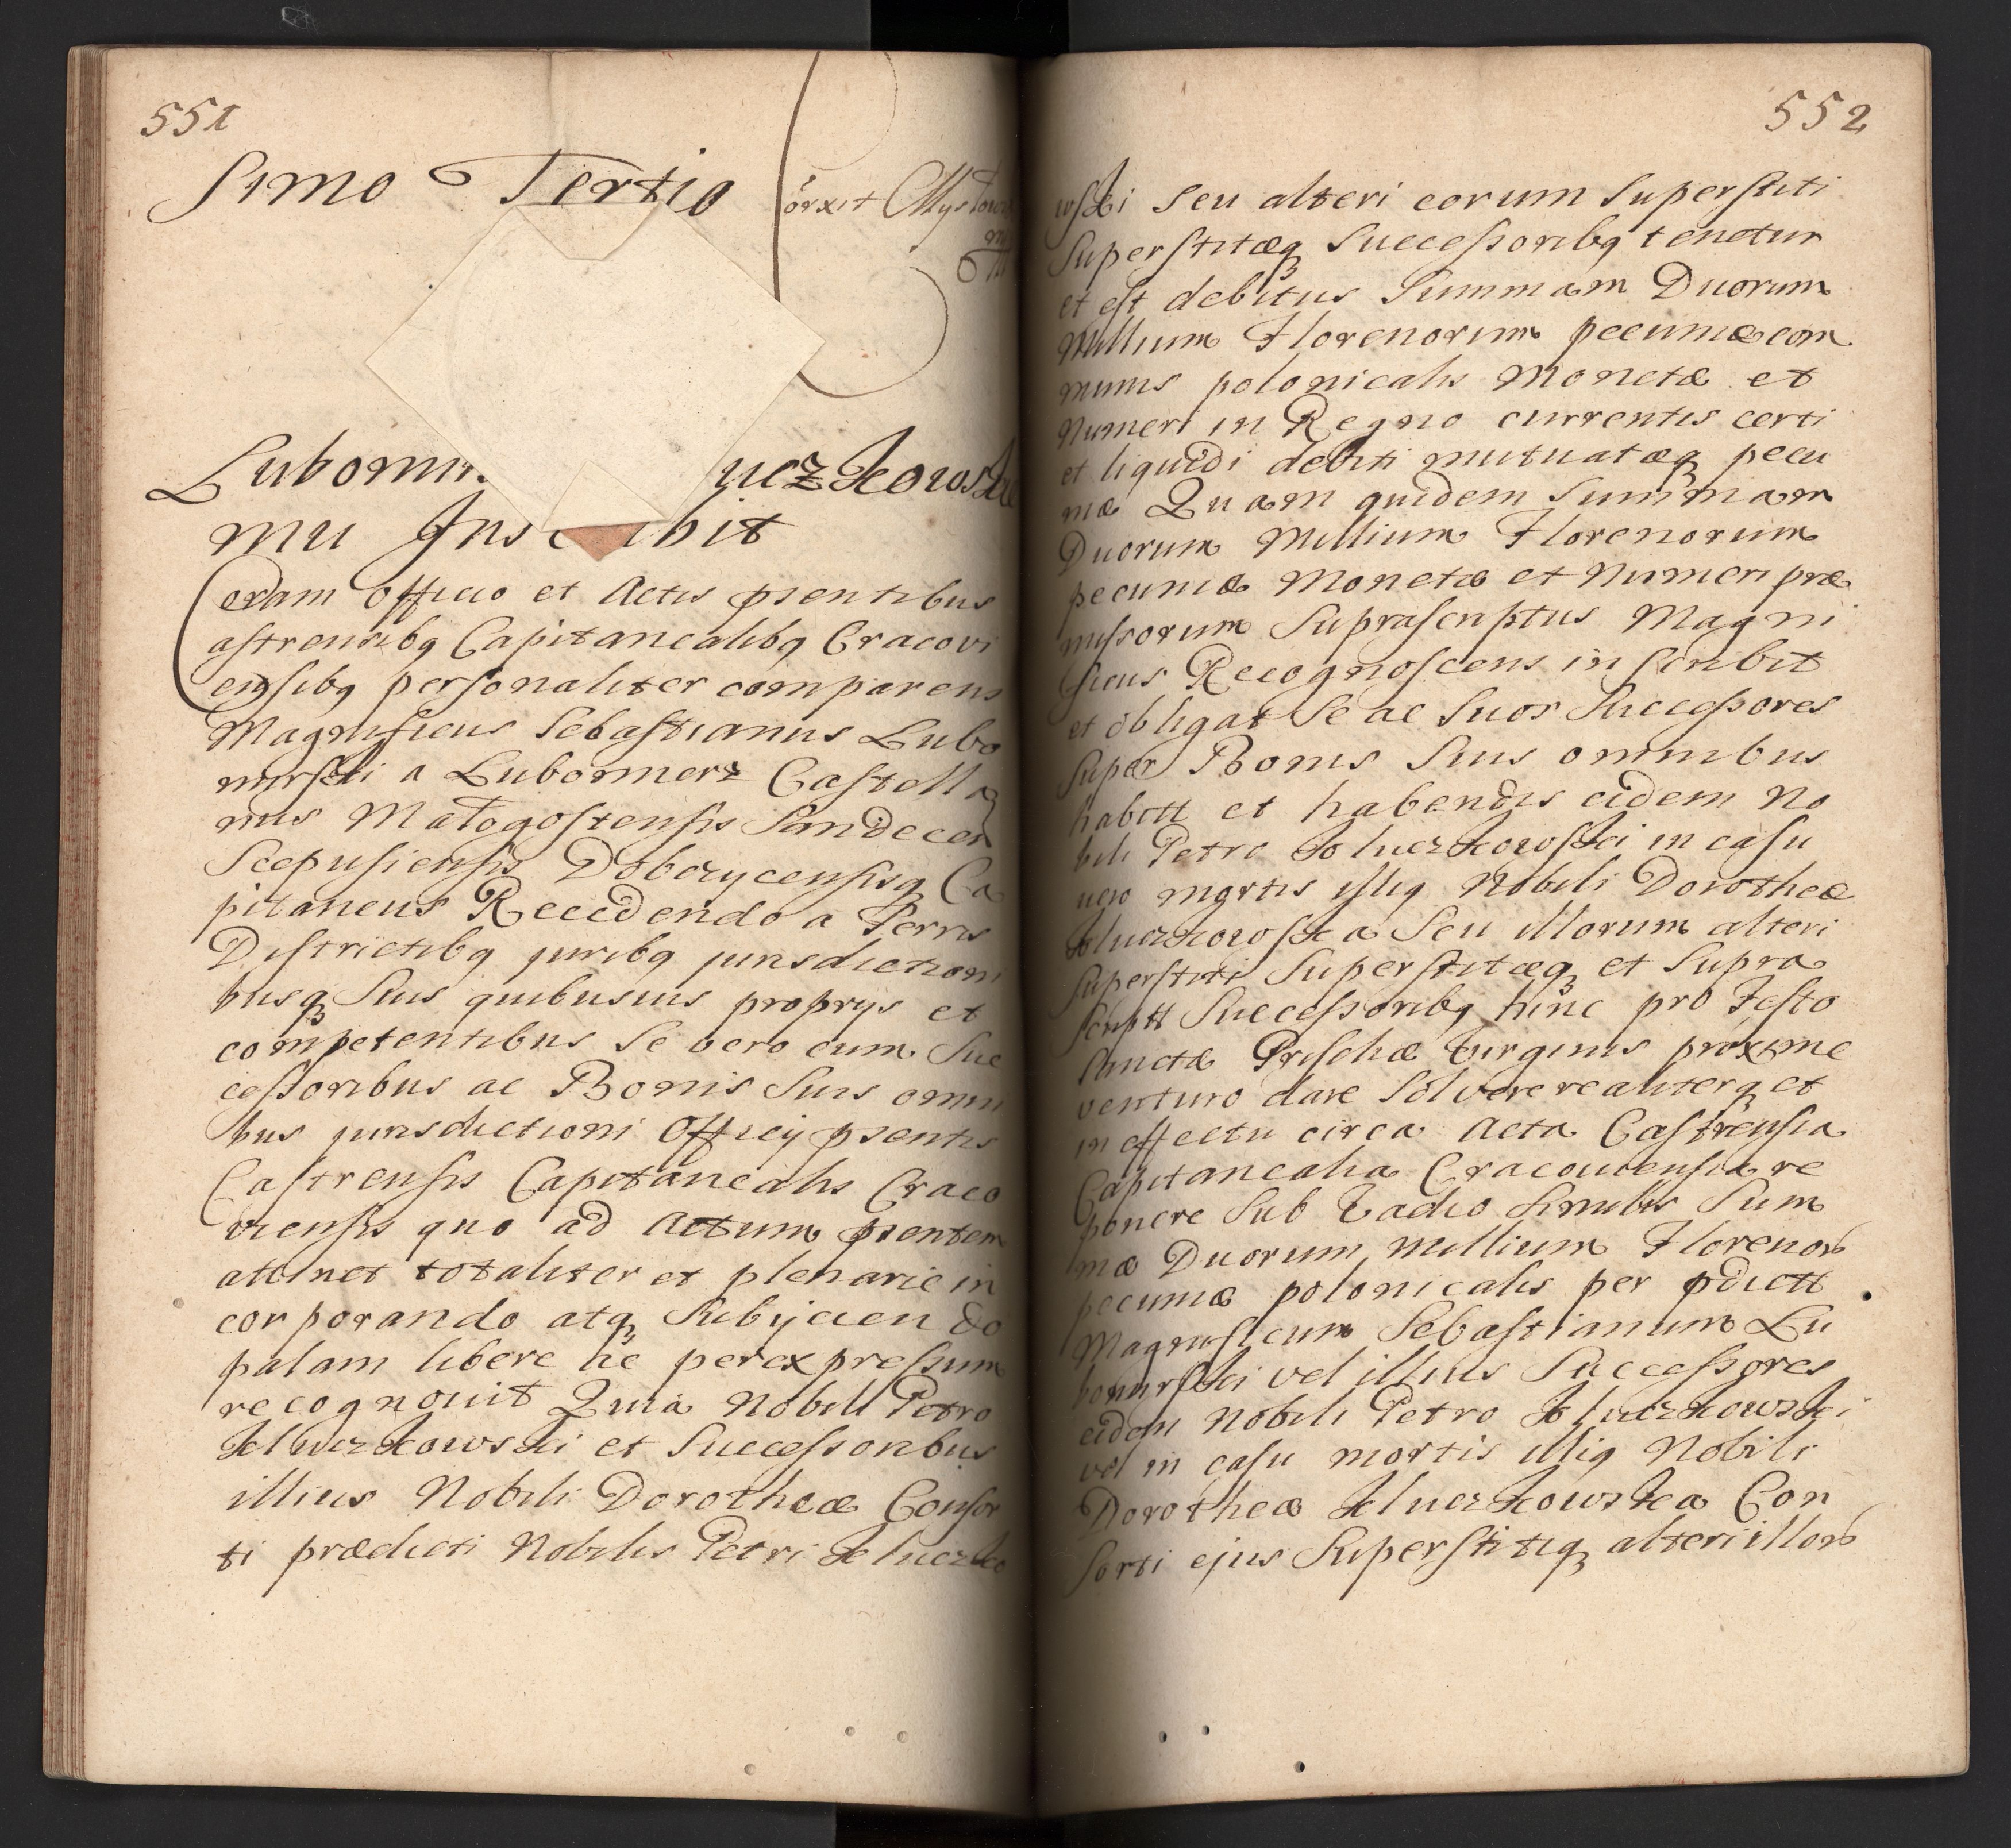 551
simo Tertio
Lubomir
mu Ins bit
Coram Officio et Actis pientibus
astrensibq Capitanealibq Cracovi
ensibq personaliter comparens
Magnificus Sebastianus Lubo
mirski a Lubomierz Castella
nus Małogostensis Sandecen
Scepusiensis Dobczycensisq Ca
pitaneus Recedendo a Terris
Districtibq juribq jurisdictioni
busq Suis quibusuis proprijs et
competentibus Se vero cum Suc
cessoribus ac Bonis Suis omni
bus jurisdictioni Officij pientis
Castrensis Capitanealis Craco
viensis quo ad Actum pientem
attinet totaliter et plenarie in
corporando atq Subijcien do
palam libere ac per expressum
recognouit Quia Nobili Petro
Kluczkowski et Successoribus
illius Nobili Dorotheæ Consor
ti prædicti Nobilis Petri Kluczko
552
wski seu alteri eorum Superstiti
Superstitæq Successoribq tenetur
et est debitus Summam Duorum
Millium Florenorum pecuniæ com
munis polonicalis Monetæ et
Numeri in Regno currentis certi
et liquidi debiti mutuatæq pecu
niæ Quam quidem Summam
Duorum Millium Florenorum
pecuniæ Monetæ et Numeri præ
missorum Suprascriptus Magni
ficus Recognoscens inscribit
et obligat Se ac Suos Successores
Super Bonis Suis omnibus
habitt et habendis eidem No
bili Petro Kluczkowski in casu
uero mortis illiq Nobili Dorotheæ
Kluczkowska Seu illorum alteri
Superstiti Superstitæq et Supra
scriptt Successoribq hinc pro Festo
Sanctæ Prischæ Virginis proxime
venturo dare Solvere realiterq et
in effectu circa Acta Castrensia
Capitanealia Cracouiensia re
ponere Sub Vadio Similis Sum
mæ Duorum Millium Florenor
pecuniæ polonicalis per pdictt
Magnificum Sebastianum Lu
bomirski vel illius Successores
eidem Nobili Petro Kluczkowski
vel in casu mortis illiq Nobili
Dorotheæ Kluczkowska Con
sorti ejus Superstitiq alteri illor